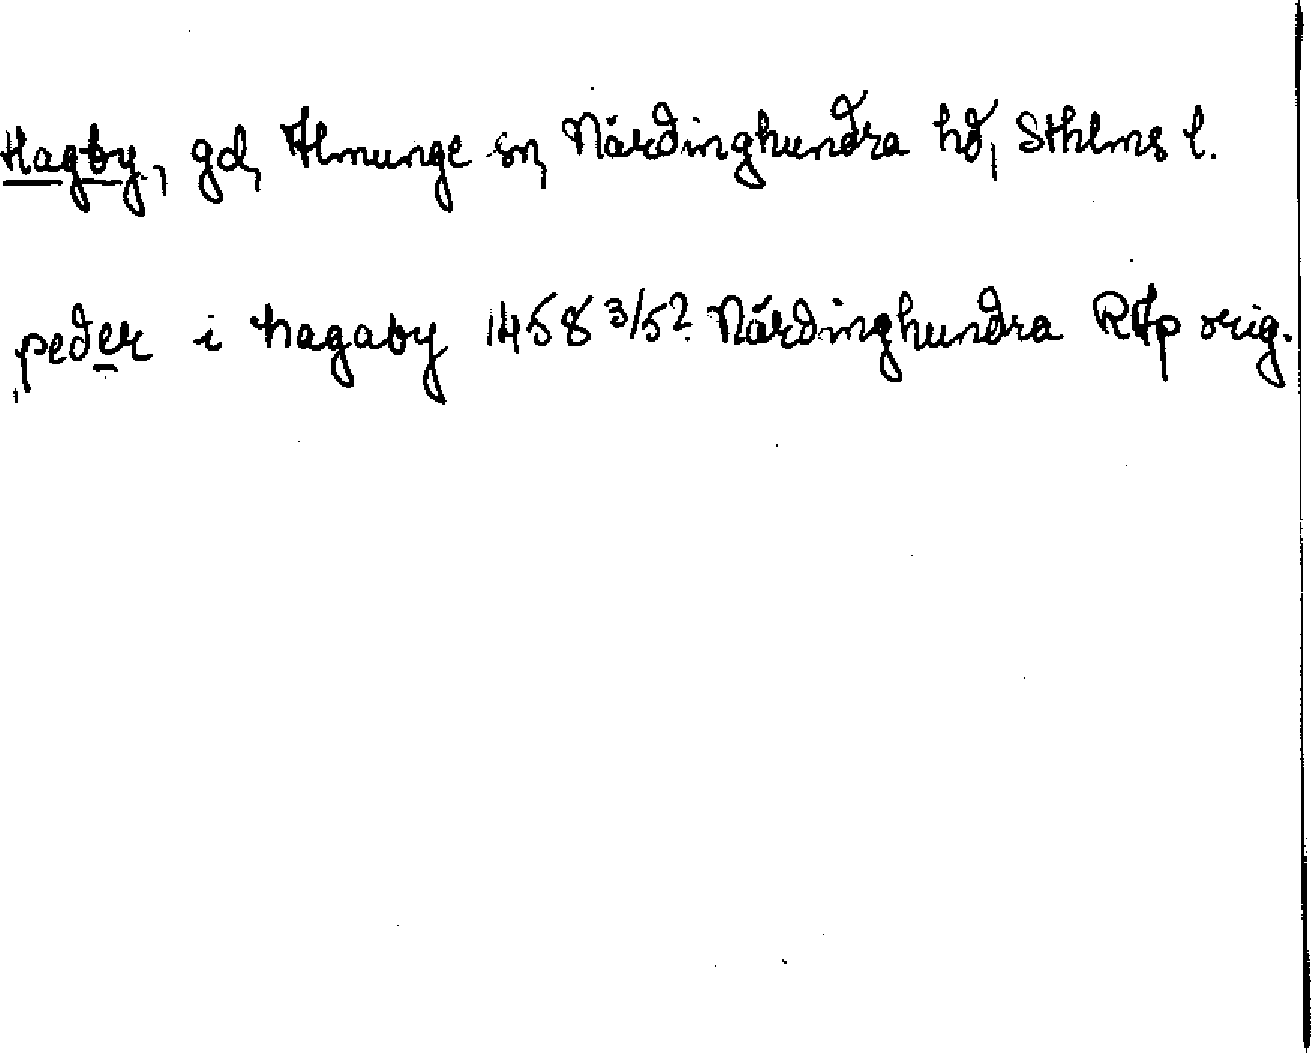 Hagby, gd, Almunge sn, Närdinghundra hd, Sthlms l.
peder i hagaby 1458 3/5? Närdinghundra RAp orig.